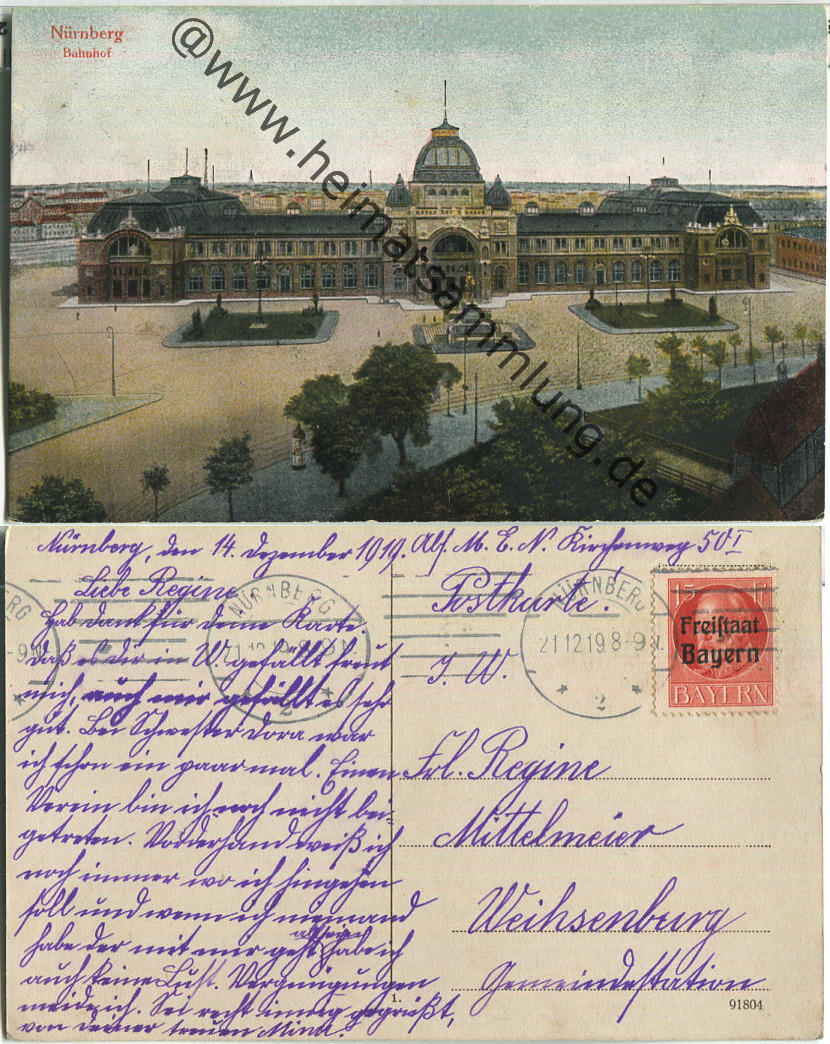 Nürnberg
Bahnhof
@www.heimatsammlung.de
Nürnberg, den 14. Dezember 1919. Abs. M. E. N. Kirchenweg 50 I
Liebe Regine
Hab dank für deine Karte.
Daß es dir in W. gefällt freut
mich, auch mir gefällt es sehr
gut. Bei Schwester Dora war
ich schon ein paar mal. Einen
Verein bin ich noch nicht bei-
getreten. Vorderhand weiß ich
noch immer wo ich hingehen
soll und wenn ich niemand
habe der mit mir geht habe ich
auch keine Lust. Vergnügungen
meide ich. Sei recht innig gegrüßt,
von deiner treuen Mina.
Postkarte!
I. W.
Frl. Regine
Mittelmeier
Weihsenburg
Gemeindestation
NÜRNBERG
21.12.19.8-9N.
2
NÜRNBERG
21.12.19.8-9N.
2
15 P
Freistaat
Bayern
BAYERN
1.
91804